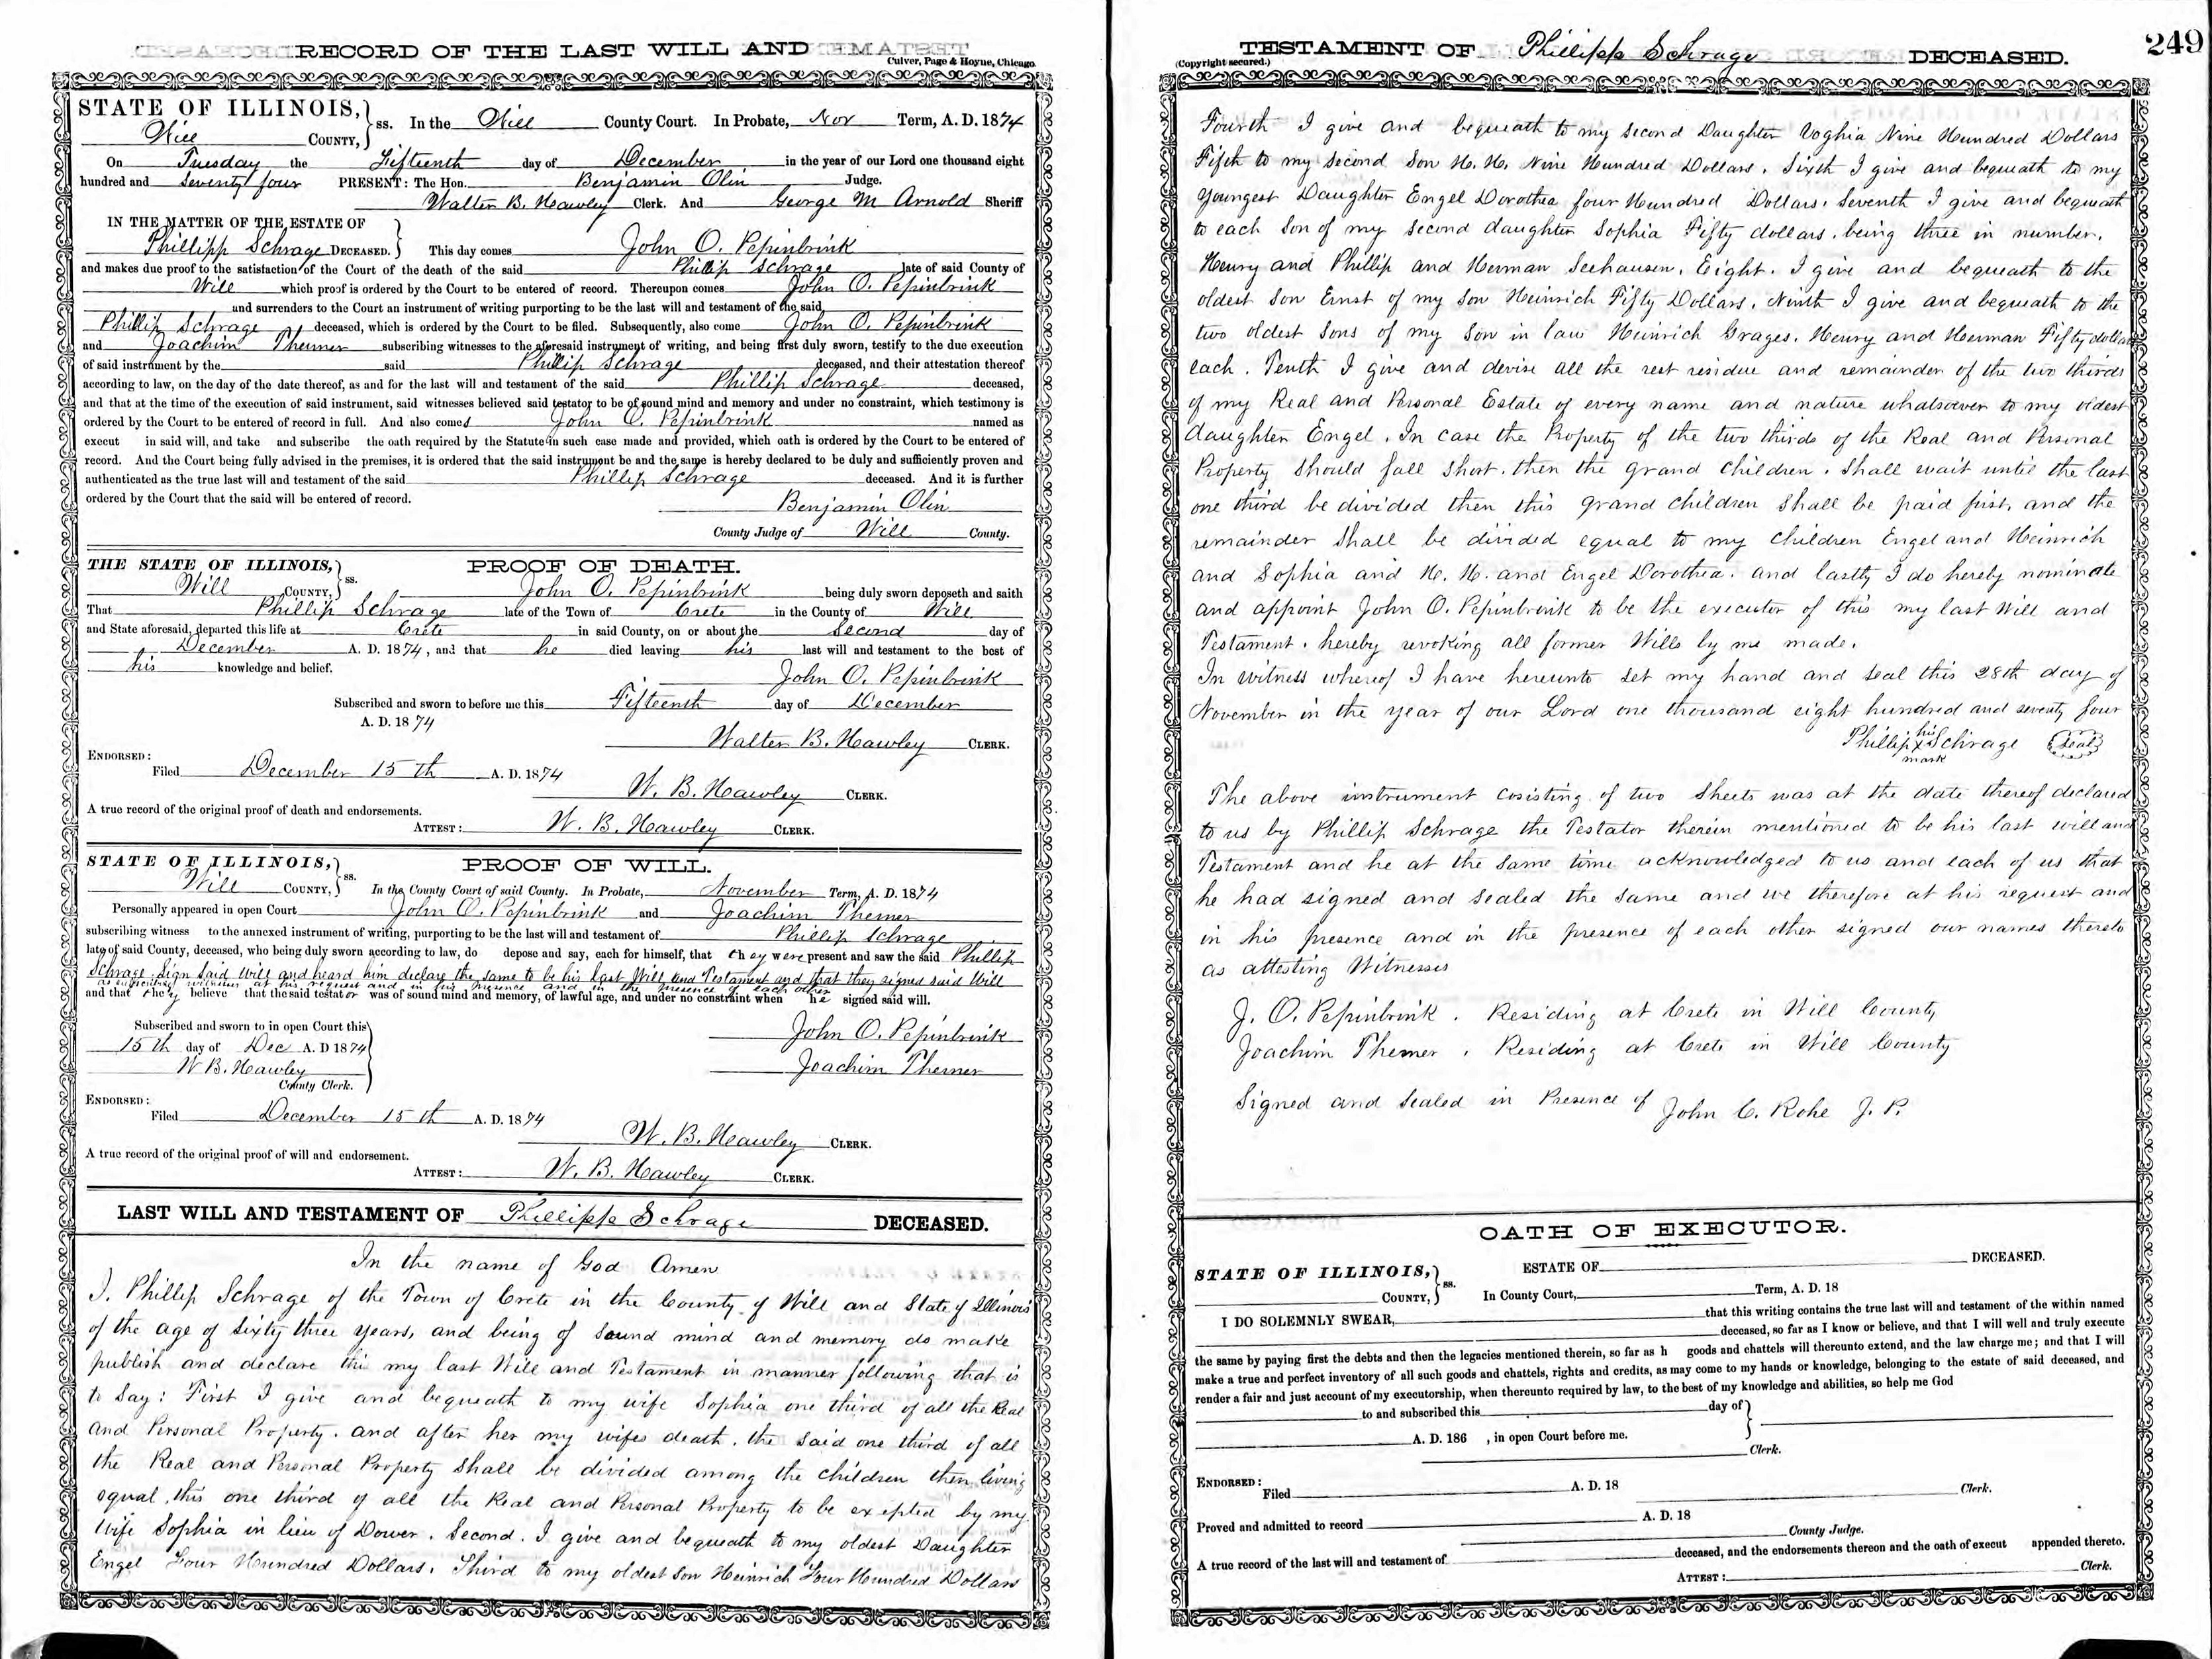 RECORD OF THE LAST WILL AND
Culver, Page & Hoyne, Chicago.
STATE OF ILLINOIS,
Will COUNTY, } ss. In the Will County Court. In Probate, Nov Term, A. D. 1874
On Tuesday the Fifteenth day of December in the year of our Lord one thousand eight
hundred and Seventy four PRESENT: The Hon. Benjamin Olin Judge.
Walter B. Hawley Clerk. And George M Arnold Sheriff
IN THE MATTER OF THE ESTATE OF
Phillipp Schrage DECEASED. } This day comes John O. Pepinbrink
and makes due proof to the satisfaction of the Court of the death of the said Phillip Schrage late of said County of
Will which proof is ordered by the Court to be entered of record. Thereupon comes John O. Pepinbrink
and surrenders to the Court an instrument of writing purporting to be the last will and testament of the said
Phillip Schrage deceased, which is ordered by the Court to be filed. Subsequently, also come John O. Pepinbrink
and Joachim Themer subscribing witnesses to the aforesaid instrument of writing, and being first duly sworn, testify to the due execution
of said instrument by the said Phillip Schrage deceased, and their attestation thereof
according to law, on the day of the date thereof, as and for the last will and testament of the said Phillip Schrage deceased,
and that at the time of the execution of said instrument, said witnesses believed said testator to be of sound mind and memory and under no constraint, which testimony is
ordered by the Court to be entered of record in full. And also comes John O. Pepinbrink named as
execut in said will, and take and subscribe the oath required by the Statute in such case made and provided, which oath is ordered by the Court to be entered of
record. And the Court being fully advised in the premises, it is ordered that the said instrument be and the same is hereby declared to be duly and sufficiently proven and
authenticated as the true last will and testament of the said Phillip Schrage deceased. And it is further
ordered by the Court that the said will be entered of record.
Benjamin Olin
County Judge of Will County.
THE STATE OF ILLINOIS, PROOF OF DEATH.
Will COUNTY, } ss. John O. Pepinbrink being duly sworn deposeth and saith
That Phillip Schrage late of the Town of Crete in the County of Will
and State aforesaid, departed this life at Crete in said County, on or about the Second day of
December A. D. 1874, and that he died leaving his last will and testament to the best of
his knowledge and belief.
John O. Pepinbrink
Subscribed and sworn to before me this Fifteenth day of December
A. D. 1874
Walter B. Hawley CLERK.
ENDORSED:
Filed December 15th A. D. 1874
W. B. Hawley CLERK.
A true record of the original proof of death and endorsements.
ATTEST: W. B. Hawley CLERK.
STATE OF ILLINOIS, PROOF OF WILL.
Will COUNTY, } ss. In the County Court of said County. In Probate, November Term, A. D. 1874
Personally appeared in open Court John O. Pepinbrink and Joachim Themer
subscribing witness to the annexed instrument of writing, purporting to be the last will and testament of Phillip Schrage
late of said County, deceased, who being duly sworn according to law, do depose and say, each for himself, that they were present and saw the said Phillip
Schrage Sign Said Will and heard him declare the same to be his last Will and Testament and that they signed said Will
as subscribing witness at his request and in his presence and in the presence of each other
and that they believe that the said testator was of sound mind and memory, of lawful age, and under no constraint when he signed said will.
Subscribed and sworn to in open Court this John O. Pepinbrink
15th day of Dec A. D 1874 Joachim Themer
W B. Hawley
County Clerk.
ENDORSED:
Filed December 15th A. D. 1874
W. B. Hawley CLERK.
A true record of the original proof of will and endorsement.
ATTEST: W. B. Hawley CLERK.
LAST WILL AND TESTAMENT OF Phillipp Schrage DECEASED.
In the name of God Amen
I. Phillip Schrage of the Town of Crete in the County of Will and State of Illinois
of the age of Sixty three years, and being of sound mind and memory do make
publish and declare this my last Will and Testament in manner following that is
to say: First I give and bequeath to my wife Sophia one third of all the Real
and Personal Property. and after her my wifes death. the said one third of all
the Real and Personal Property shall be divided among the children then living
equal, this one third of all the Real and Personal Property to be excepted by my
Wife Sophia in lieu of Dower. Second. I give and bequeath to my oldest Daughter
Engel Four Hundred Dollars. Third to my oldest Son Heinrich Four Hundred Dollars
TESTAMENT OF Phillipp Schrage DECEASED.
249
(Copyright secured.)
Fourth I give and bequeath to my Second Daughter Voghia Nine Hundred Dollars
Fifth to my Second Son H. H. Nine Hundred Dollars. Sixth I give and bequeath to my
Youngest Daughter Engel Dorothea four Hundred Dollars. Seventh I give and bequeath
to each Son of my Second daughter Sophia Fifty dollars. being three in number.
Henry and Phillip and Herman Seehausen. Eight. I give and bequeath to the
oldest Son Ernst of my Son Heinrich Fifty Dollars. Ninth I give and bequeath to the
two oldest Sons of my Son in law Heinrich Grages. Henry and Herman Fifty dollars
each. Tenth I give and devise all the rest residue and remainder of the two thirds
of my Real and Personal Estate of every name and nature whatsoever to my oldest
daughter Engel. In case the Property of the two thirds of the Real and Personal
Property should fall short. then the grand children. shall wait until the last
one third be divided then this grand children shall be paid first, and the
remainder shall be divided equal to my children Engel and Heinrich
and Sophia and H. H. and Engel Dorothea. and lastly I do hereby nominate
and appoint John O. Pepinbrink to be the executor of this my last Will and
Testament. hereby revoking all former Wills by me made.
In witness whereof I have hereunto set my hand and seal this 28th day of
November in the year of our Lord one thousand eight hundred and seventy four
Phillip his x mark Schrage (Seal)
The above instrument cosisting of two Sheets was at the date thereof declared
to us by Phillip Schrage the Testator therein mentioned to be his last will and
Testament and he at the same time acknowledged to us and each of us that
he had signed and sealed the same and we therefore at his request and
in his presence and in the presence of each other signed our names thereto
as attesting Witnesses
J. O. Pepinbrink. Residing at Crete in Will County
Joachim Themer. Residing at Crete in Will County
Signed and Sealed in Presence of John C. Rohe J. P.
OATH OF EXECUTOR.
ESTATE OF DECEASED.
STATE OF ILLINOIS,
COUNTY, } ss. In County Court, Term, A. D. 18
I DO SOLEMNLY SWEAR, that this writing contains the true last will and testament of the within named
deceased, so far as I know or believe, and that I will well and truly execute
the same by paying first the debts and then the legacies mentioned therein, so far as h goods and chattels will thereunto extend, and the law charge me; and that I will
make a true and perfect inventory of all such goods and chattels, rights and credits, as may come to my hands or knowledge, belonging to the estate of said deceased, and
render a fair and just account of my executorship, when thereunto required by law, to the best of my knowledge and abilities, so help me God
to and subscribed this day of
A. D. 186 , in open Court before me.
Clerk.
ENDORSED:
Filed A. D. 18 Clerk.
Proved and admitted to record A. D. 18
County Judge.
A true record of the last will and testament of deceased, and the endorsements thereon and the oath of execut appended thereto.
ATTEST: Clerk.